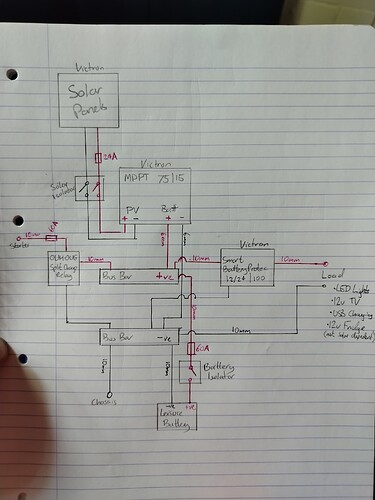 Victron
Solar
Panels
20A
Solar
Isolator
Victron
MPPT 75/15
PV
Batt
+ -
+ -
10mm
Starter
Split Charge
Relay
10mm
Bus Bar +ve
10mm
Victron
Smart
BatteryProtect
12/24 100
10mm
Load
• LED Lights
• 12v TV
• USB Charging
• 12v Fridge
Bus Bar -ve
10mm
60A
Battery
Isolator
Chassis
-ve +ve
Leisure
Battery